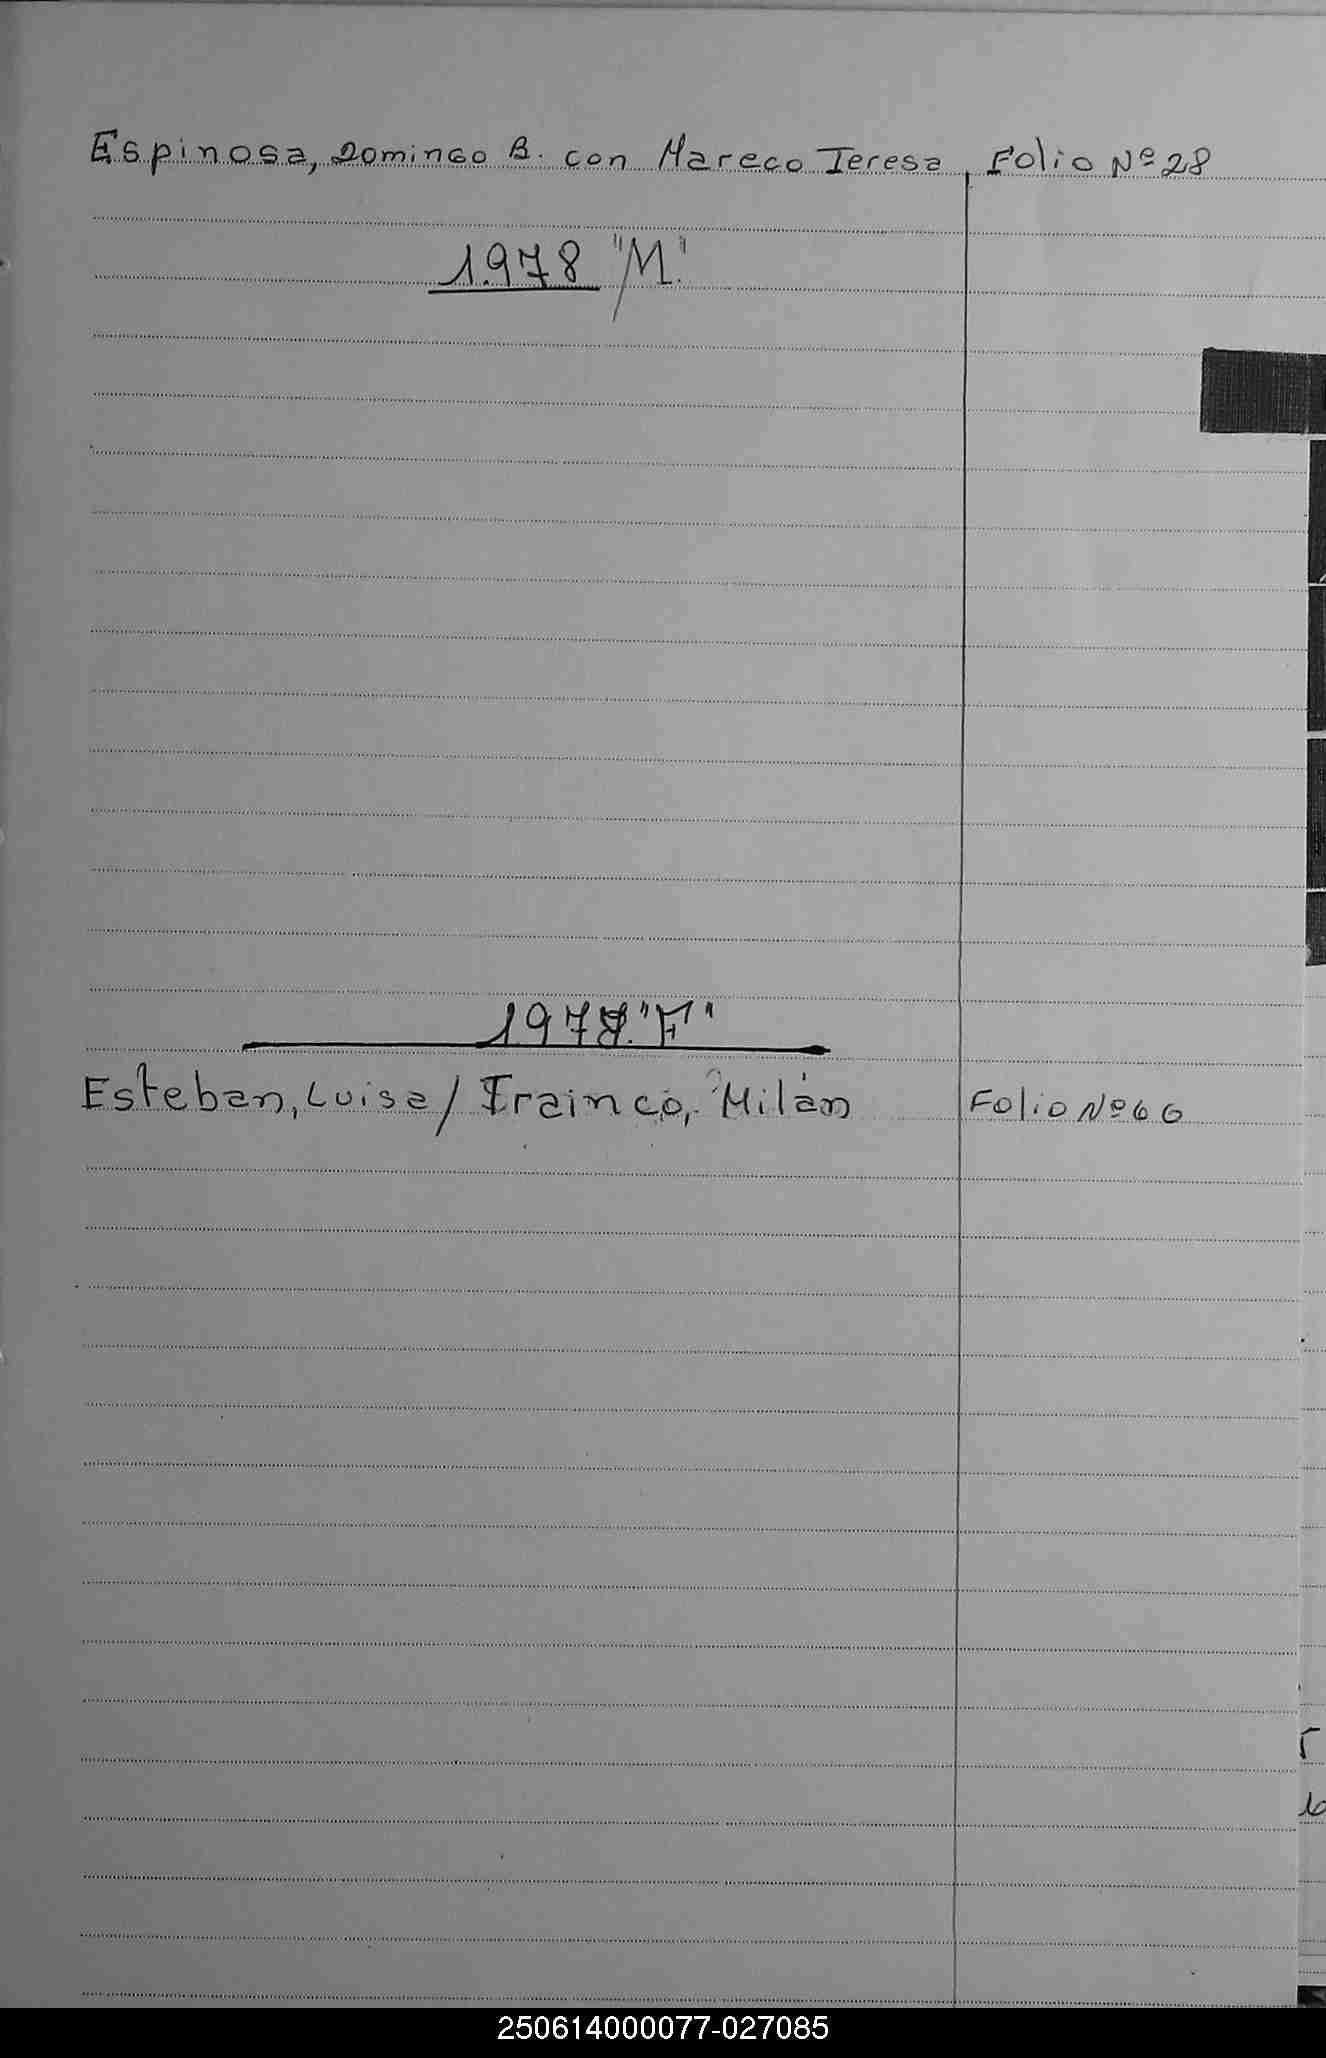 Espinosa, Domingo B. con Mareco Teresa Folio Nº 28
1978 "M"
1978 "F"
Esteban, Luisa / Frainco, Milán Folio Nº 66
250614000077-027085